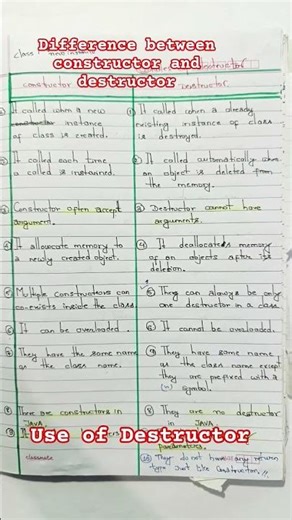 Difference between
constructor and
destructor
class
constructor
Destructor.
It called when a new
instance
of class is created.
It called when a already
existing instance of class
is destroyed.
② It called each time
a called is instanced.
② It called automatically when
an object is deleted from
the memory.
③ Constructor often accept
argument.
③ Destructor cannot have
arguments.
④ It allocate memory to
a newly created object.
④ It deallocates memory
of an objects after its
deletion.
⑤ Multiple constructors can
co-exists inside the class.
⑤ They can always be only
one destructor in a class
⑥ It can be overloaded.
⑥ It cannot be overloaded.
⑦ They have the same name
as the class name.
⑦ They have same name
as the class name except
they are prefixed with a
(~) symbol.
⑧ There are constructors in
JAVA.
⑧ They are no destructor
in JAVA
Use of Destructor
parameters.
classmate
⑩ They do not have any return
type just like constructor.